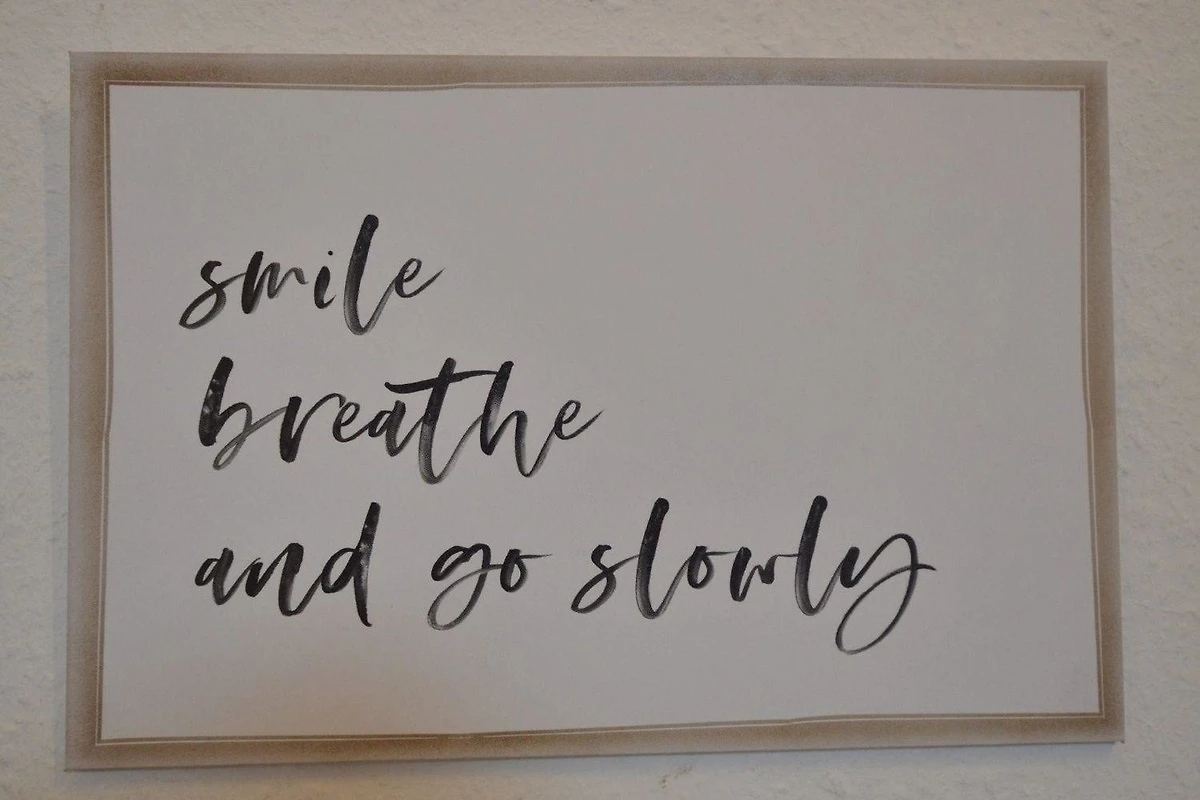 smile
breathe
and go slowly